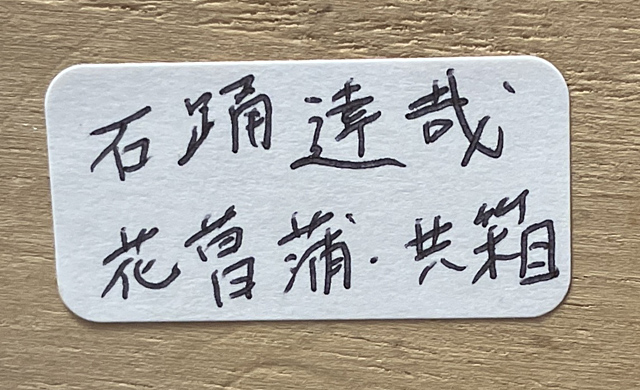 石踊達哉
花菖蒲・共箱